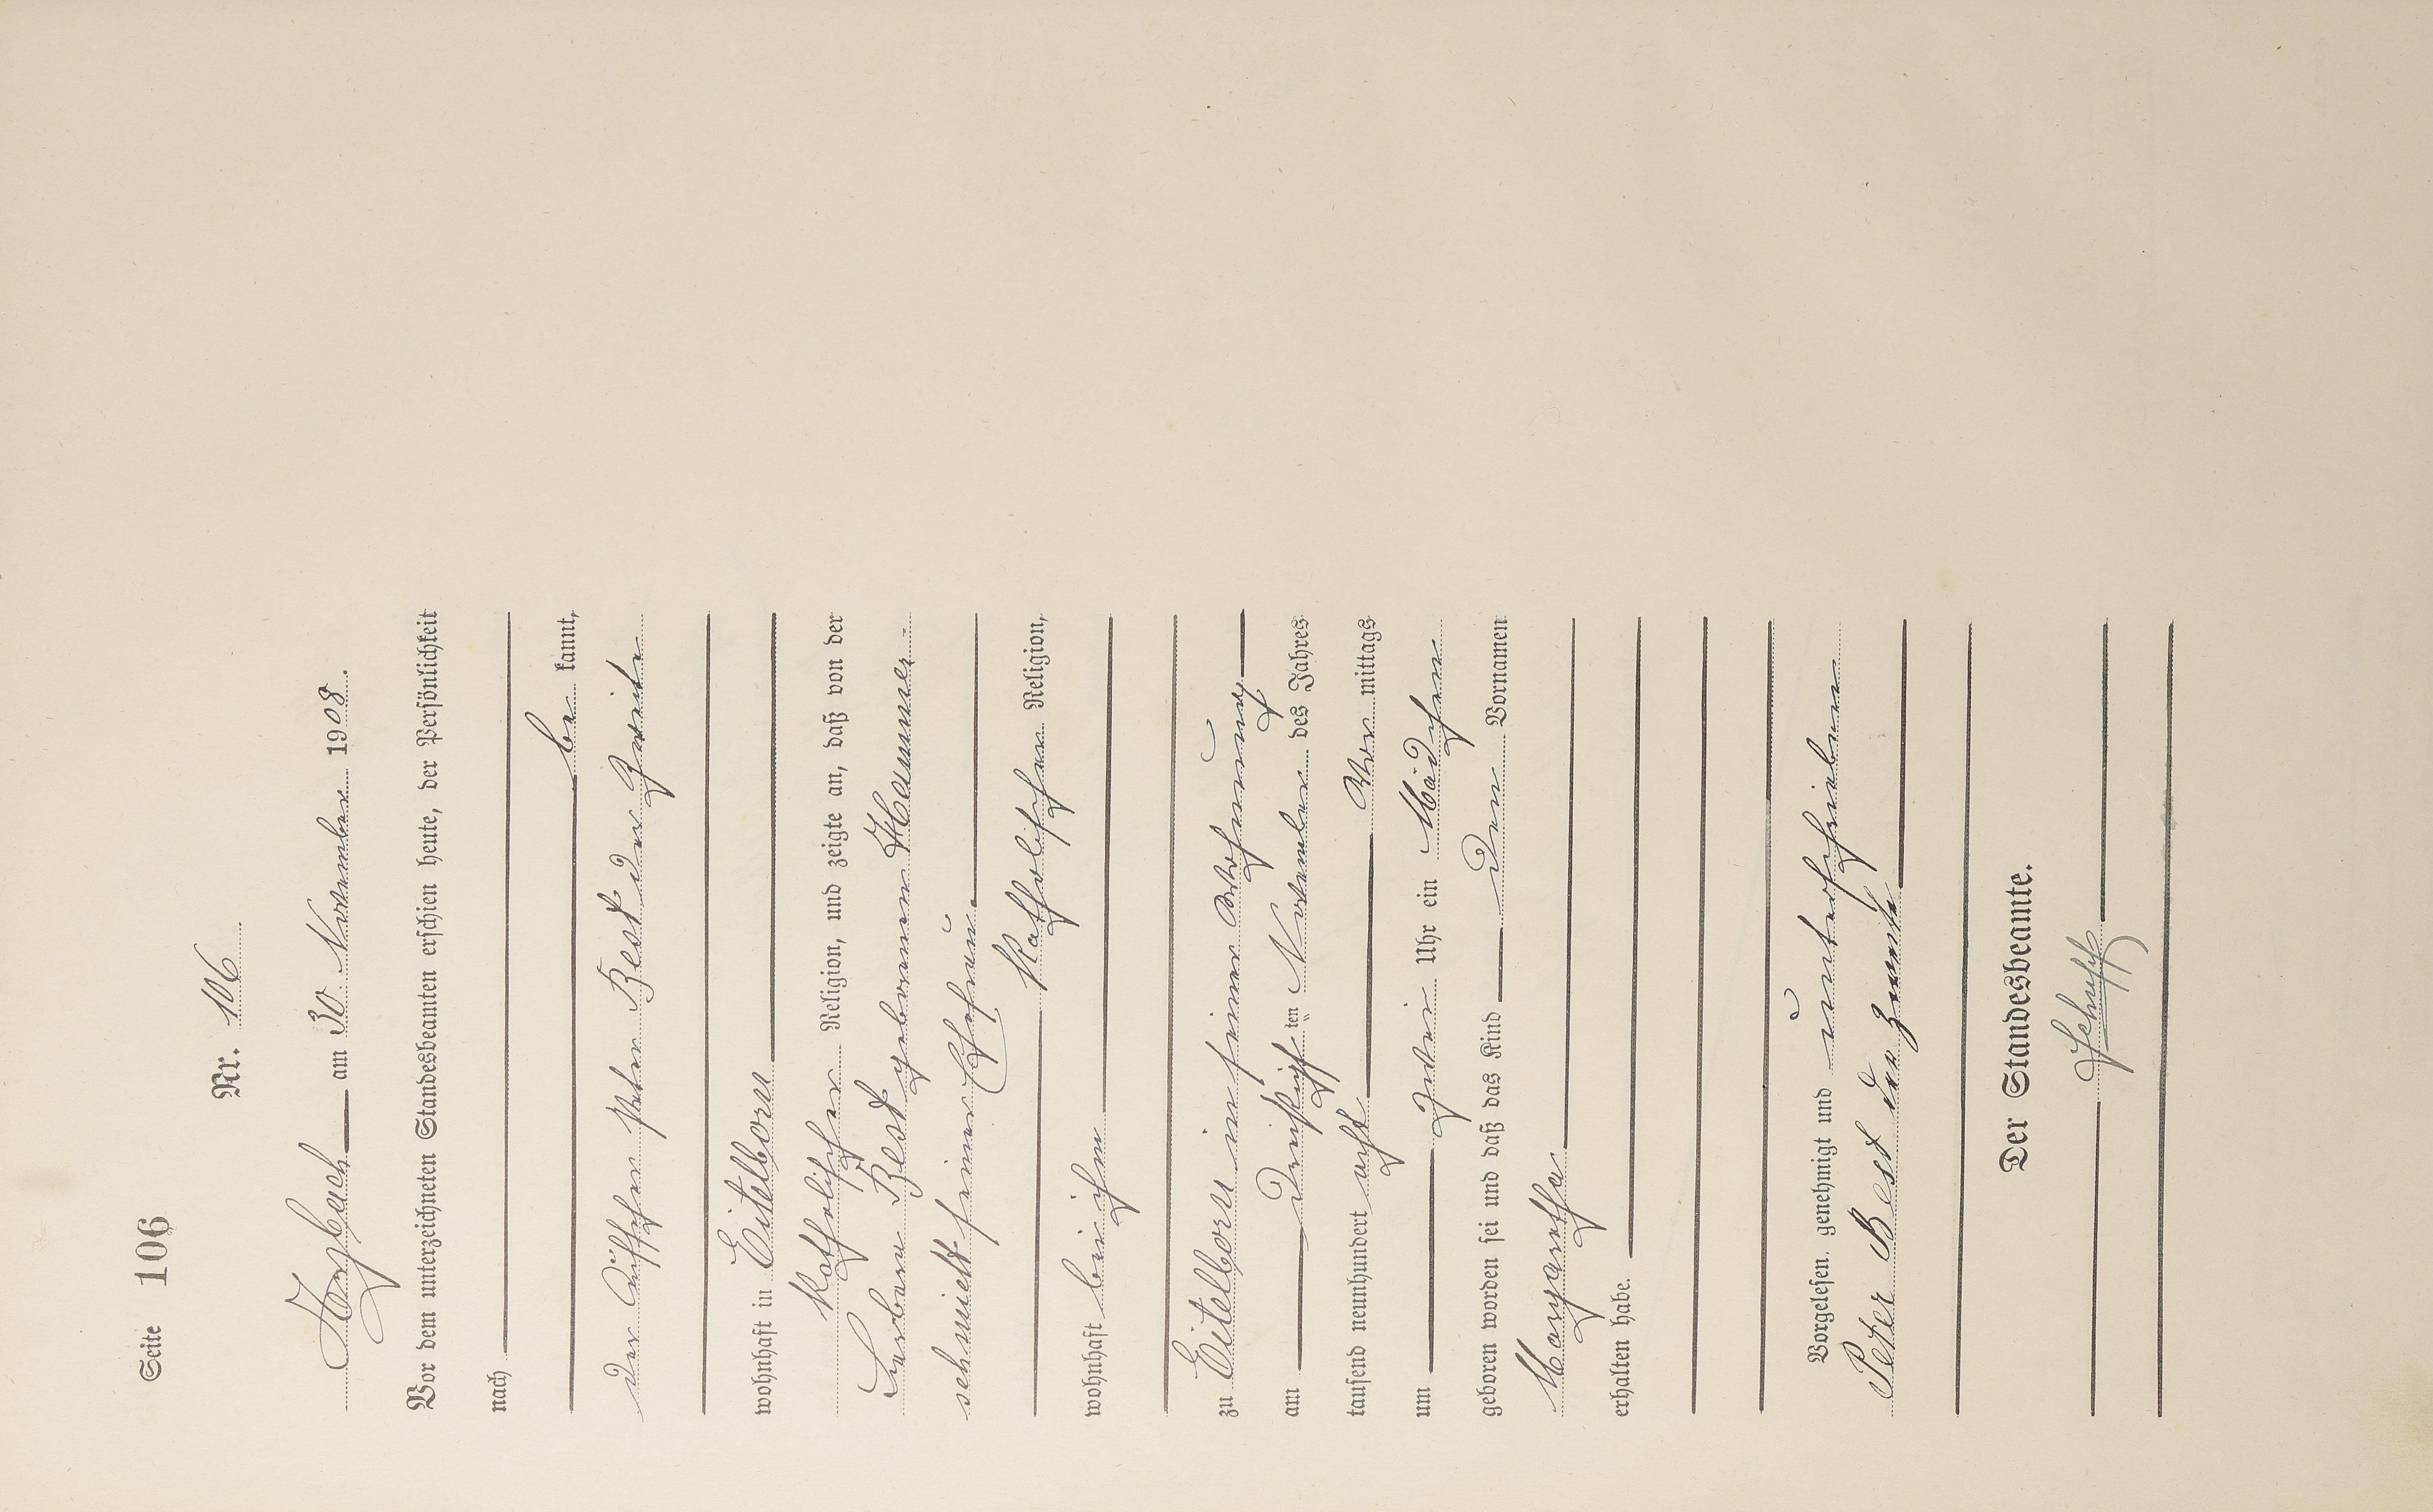 Seite 106
Nr. 106
am 30. November 1908.
Vor dem unterzeichneten Standesbeamten erschien heute, der Persönlichkeit
nach
be kannt,
der Peter Best der Zweite
wohnhaft in Eitelborn
Katholischer Religion, und zeigte an, daß von der
Barbara Best geborenen Hammer-
schmidt seiner Ehefrau
Katholischer Religion,
wohnhaft bei ihm
zu Eitelborn in seiner Wohnung
am Dreißigsten November des Jahres
tausend neunhundert acht Vor mittags
um Uhr ein Mädchen
geboren worden sei und daß das Kind den Vornamen
Margaretha
erhalten habe.
Vorgelesen, genehmigt und unterschrieben
Peter Best der Zweite
Der Standesbeamte.